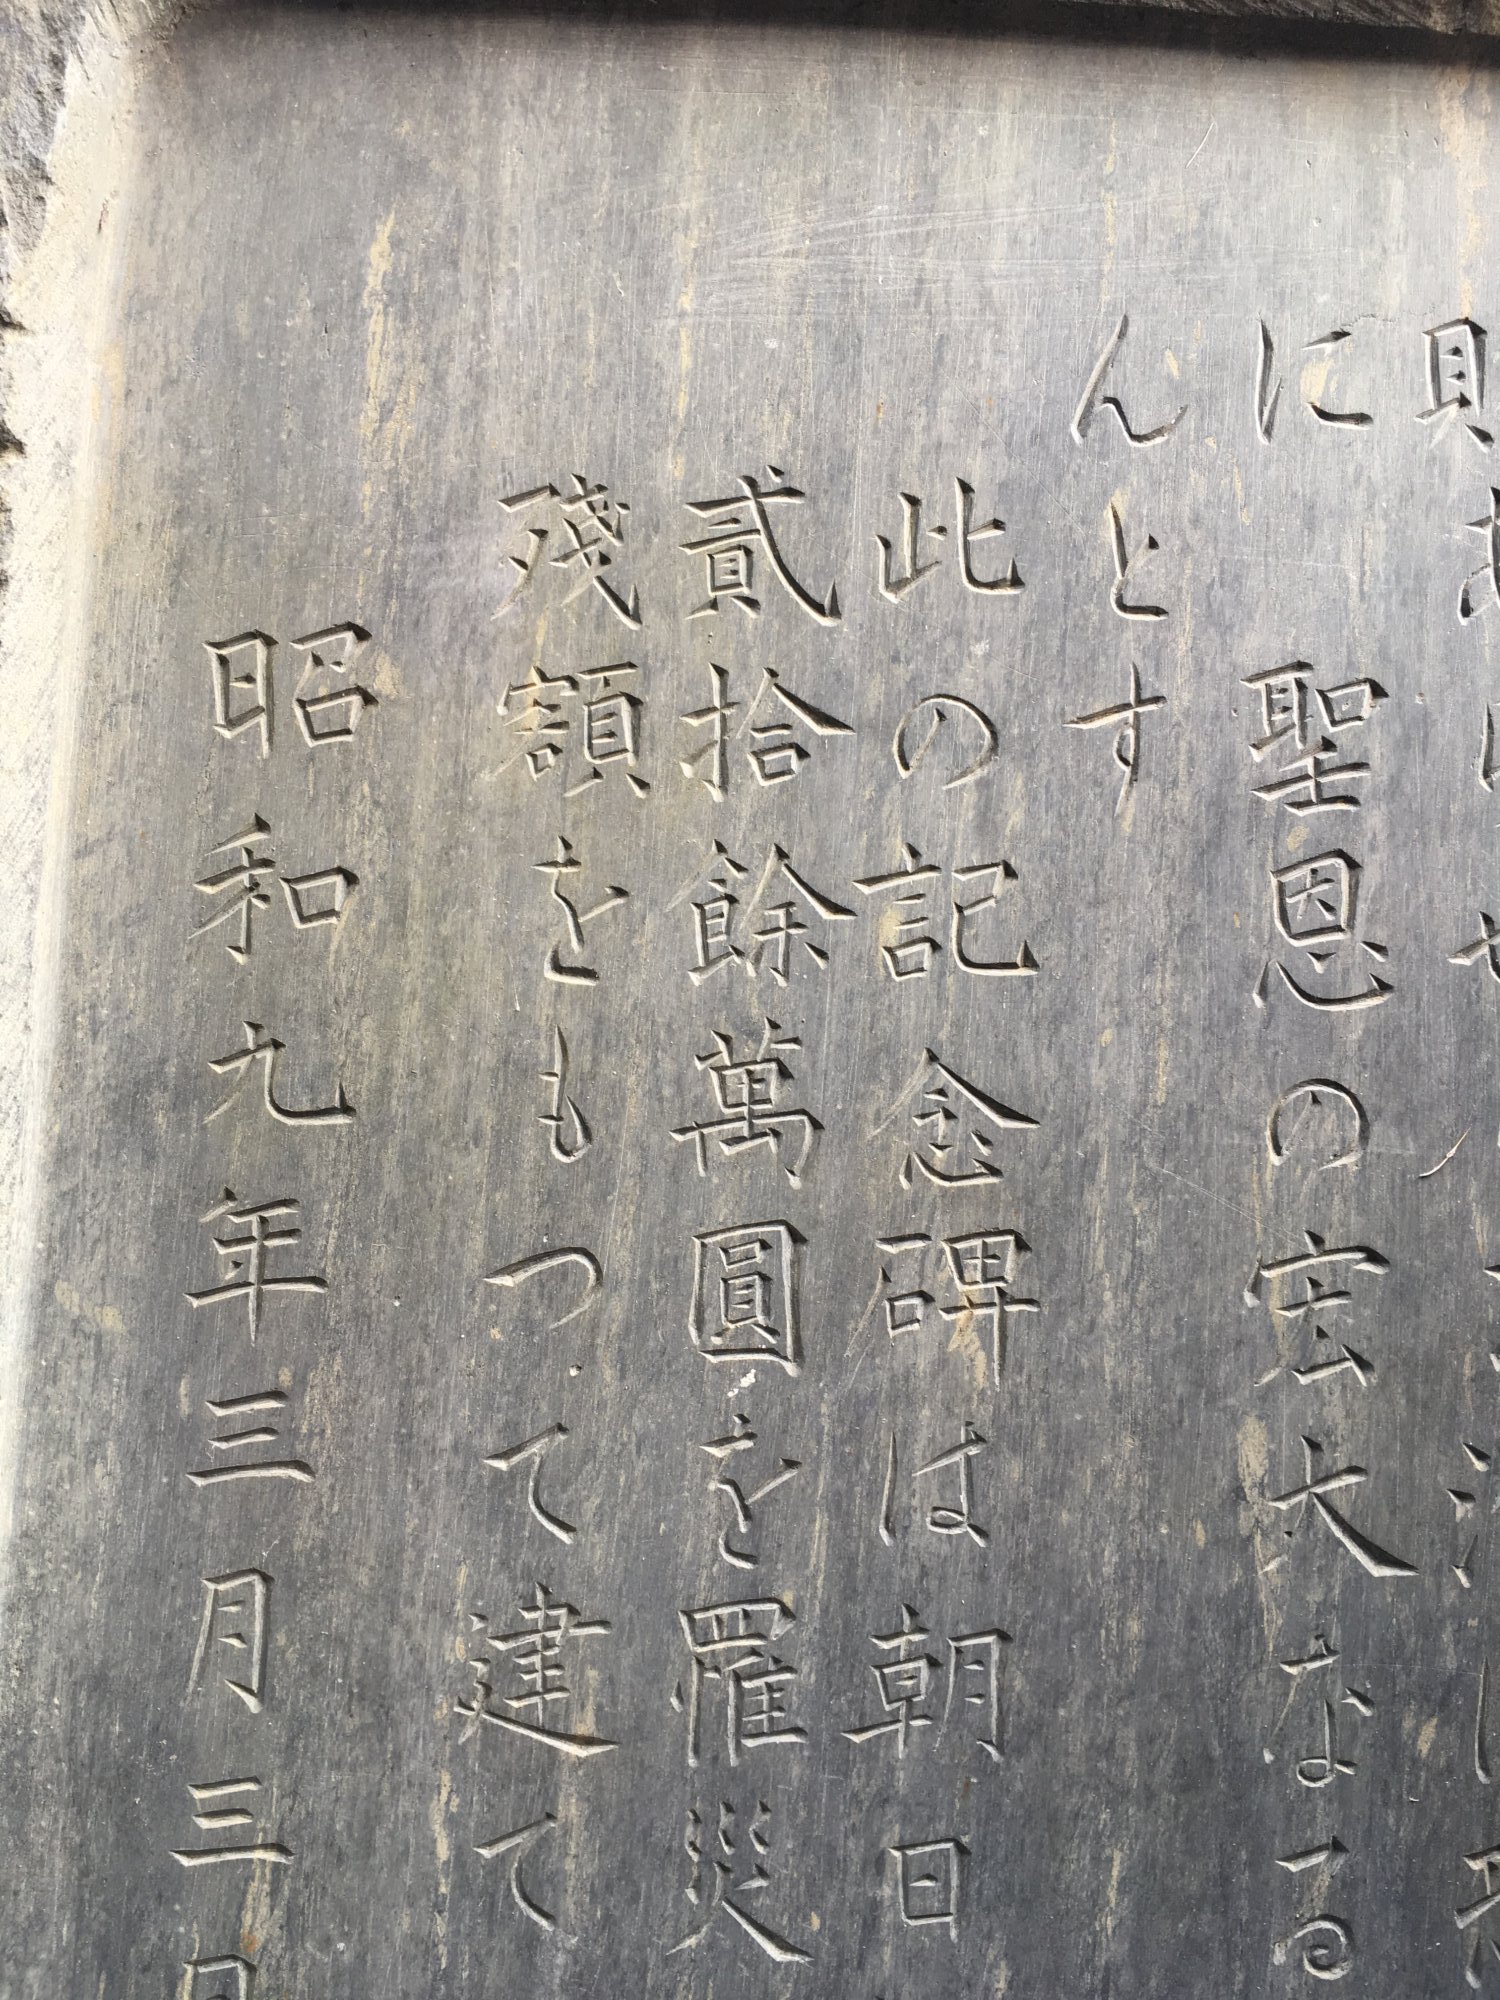 に 聖恩の宏大なる
んとす
此の記念碑は朝日
貳拾餘萬圓を罹災
殘額をもつて建て
昭和九年三月三日